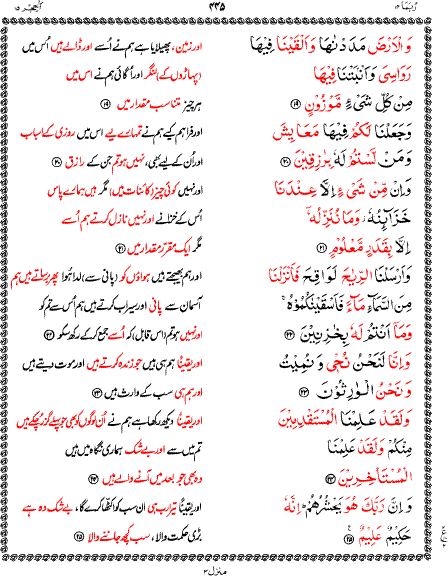 رُبَمَا ۱۴ ۴۳۵ اَلْحِجْر ۱۵
وَالْاَرْضَ مَدَدْنٰهَا وَاَلْقَيْنَا فِيْهَا
اور زمین، پھیلایا ہے ہم نے اُسے اور ڈالے ہیں اُس میں
رَوَاسِيَ وَاَنْۢبَتْنَا فِيْهَا
(پہاڑوں کے) لنگر اور اُگائی ہم نے اس میں
مِنْ كُلِّ شَيْءٍ مَّوْزُوْنٍ ۝۱۹
ہر چیز متناسب مقدار میں ۝۱۹
وَجَعَلْنَا لَكُمْ فِيْهَا مَعَايِشَ
اور فراہم کیے ہم نے تمہارے لیے اس میں روزی کے اسباب
وَمَنْ لَّسْتُمْ لَهٗ بِرٰزِقِيْنَ ۝۲۰
اور اُن کے لیے بھی، نہیں ہو تم جن کے رازق ۝۲۰
وَاِنْ مِّنْ شَيْءٍ اِلَّا عِنْدَنَا
اور نہیں کوئی چیز (کائنات میں) مگر ہیں ہمارے پاس
خَزَآئِنُهٗ وَمَا نُنَزِّلُهٗٓ
اُس کے خزانے اور نہیں نازل کرتے ہم اُسے
اِلَّا بِقَدَرٍ مَّعْلُوْمٍ ۝۲۱
مگر ایک مقرّر مقدار میں ۝۲۱
وَاَرْسَلْنَا الرِّيٰحَ لَوَاقِحَ فَاَنْزَلْنَا
اور ہم بھیجتے ہیں ہواؤں کو (پانی سے) لدا ہُوا پھر برساتے ہیں ہم
مِنَ السَّمَآءِ مَآءً فَاَسْقَيْنٰكُمُوْهُ ۚ
آسمان سے پانی اور سیراب کرتے ہیں ہم اس سے تم کو
وَمَآ اَنْتُمْ لَهٗ بِخٰزِنِيْنَ ۝۲۲
اور نہیں ہو تم (اس قابل) کہ اُسے جمع کر کے رکھ سکو ۝۲۲
وَاِنَّا لَنَحْنُ نُحْيٖ وَنُمِيْتُ
اور یقیناً ہم ہی ہیں جو زندہ کرتے ہیں اور موت دیتے ہیں
وَنَحْنُ الْوٰرِثُوْنَ ۝۲۳
اور ہم ہی سب کے وارث ہیں ۝۲۳
وَلَقَدْ عَلِمْنَا الْمُسْتَقْدِمِيْنَ
اور یقیناً دیکھ رکھا ہے ہم نے اُن لوگوں کو بھی جو پہلے گزر چکے ہیں
مِنْكُمْ وَلَقَدْ عَلِمْنَا
تم میں سے اور بے شک ہماری نگاہ میں ہیں
الْمُسْتَاْخِرِيْنَ ۝۲۴
وہ بھی جو بعد میں آنے والے ہیں ۝۲۴
وَاِنَّ رَبَّكَ هُوَ يَحْشُرُهُمْ ۭ اِنَّهٗ
اور یقیناً تیرا رب ہی ان سب کو اکٹھا کرے گا، بے شک وہ ہے
حَكِيْمٌ عَلِيْمٌ ۝۲۵
بڑی حکمت والا، سب کچھ جاننے والا ۝۲۵
منزل ۳